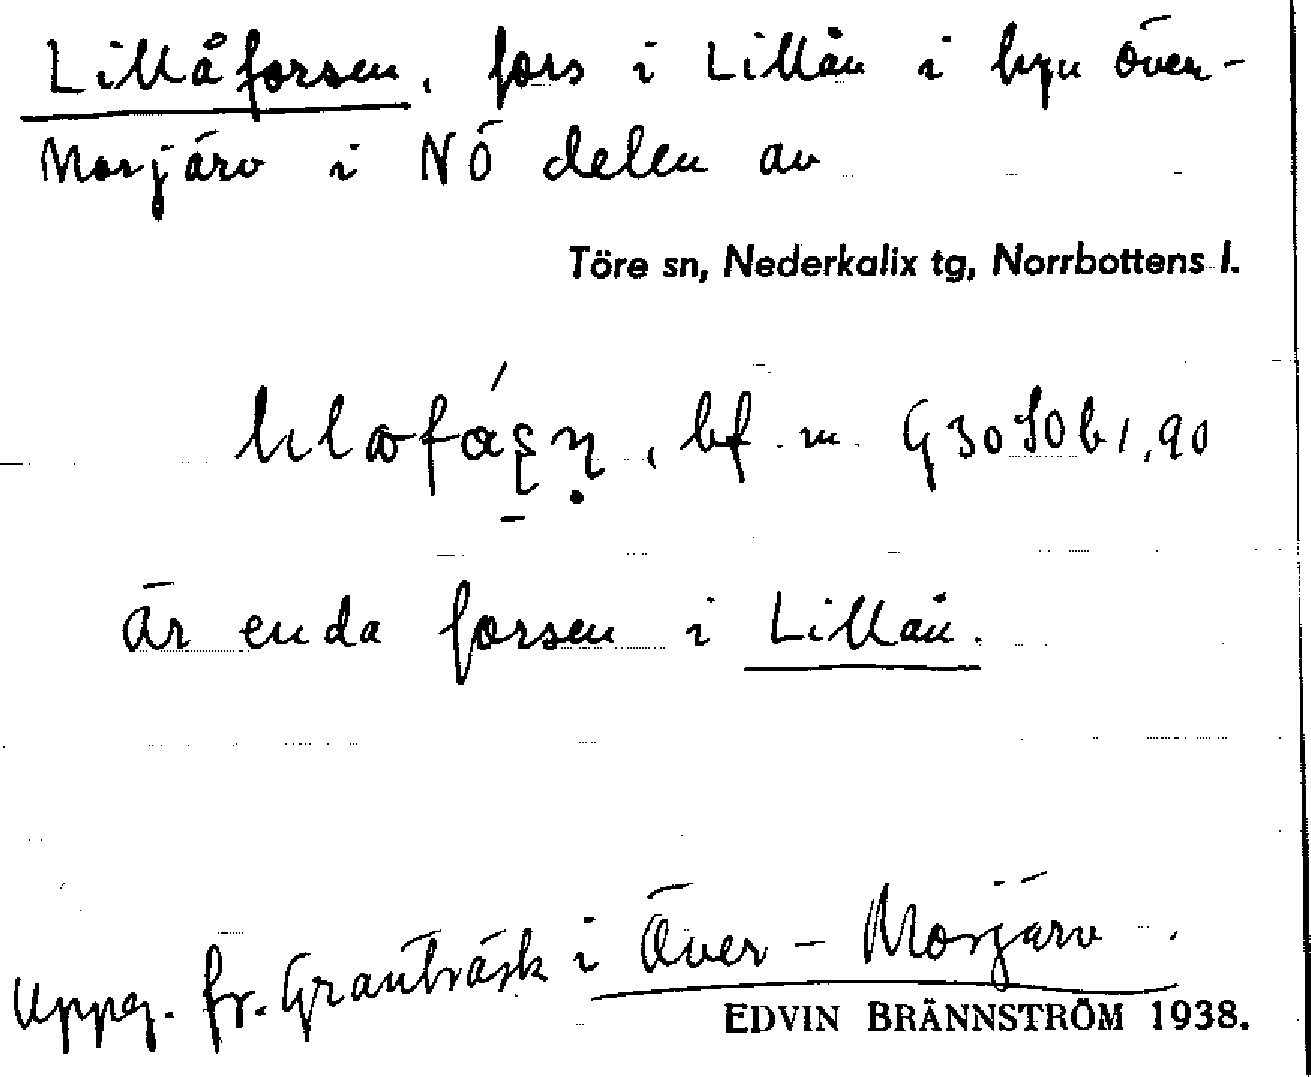 Lillåforsen, fors i Lillån i byn Över-
Morjärv i NÖ delen av
Töre sn, Nederkalix tg, Norrbottens l.
bf. m.
är enda forsen i Lillån.
Uppg. fr. Granträsk i Över-Morjärv.
EDVIN BRÄNNSTRÖM 1938.